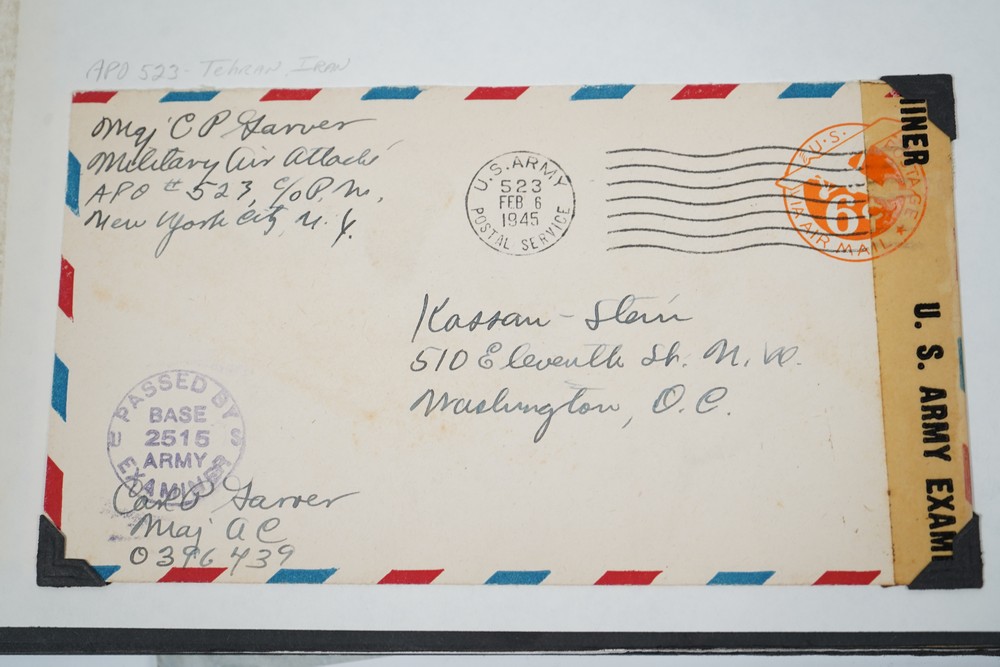 APO 523 - Tehran, Iran
Maj C P Garver
Military Air Attaché
APO # 523, c/o P. M.,
New York City, N. Y.
U.S. ARMY
523
FEB 6
1945
POSTAL SERVICE
U.S. POSTAGE
6¢
VIA AIR MAIL
INER
U. S. ARMY EXAMI
Kassan - Stein
510 Eleventh St. N. W.
Washington, D.C.
PASSED BY
BASE
2515
ARMY
EXAMINER
Carl P Garver
Maj AC
0396439